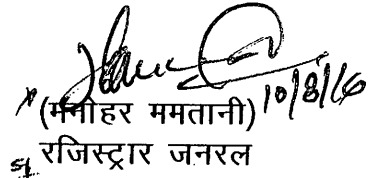 (मनोहर ममतानी) 10/8/16
रजिस्ट्रार जनरल